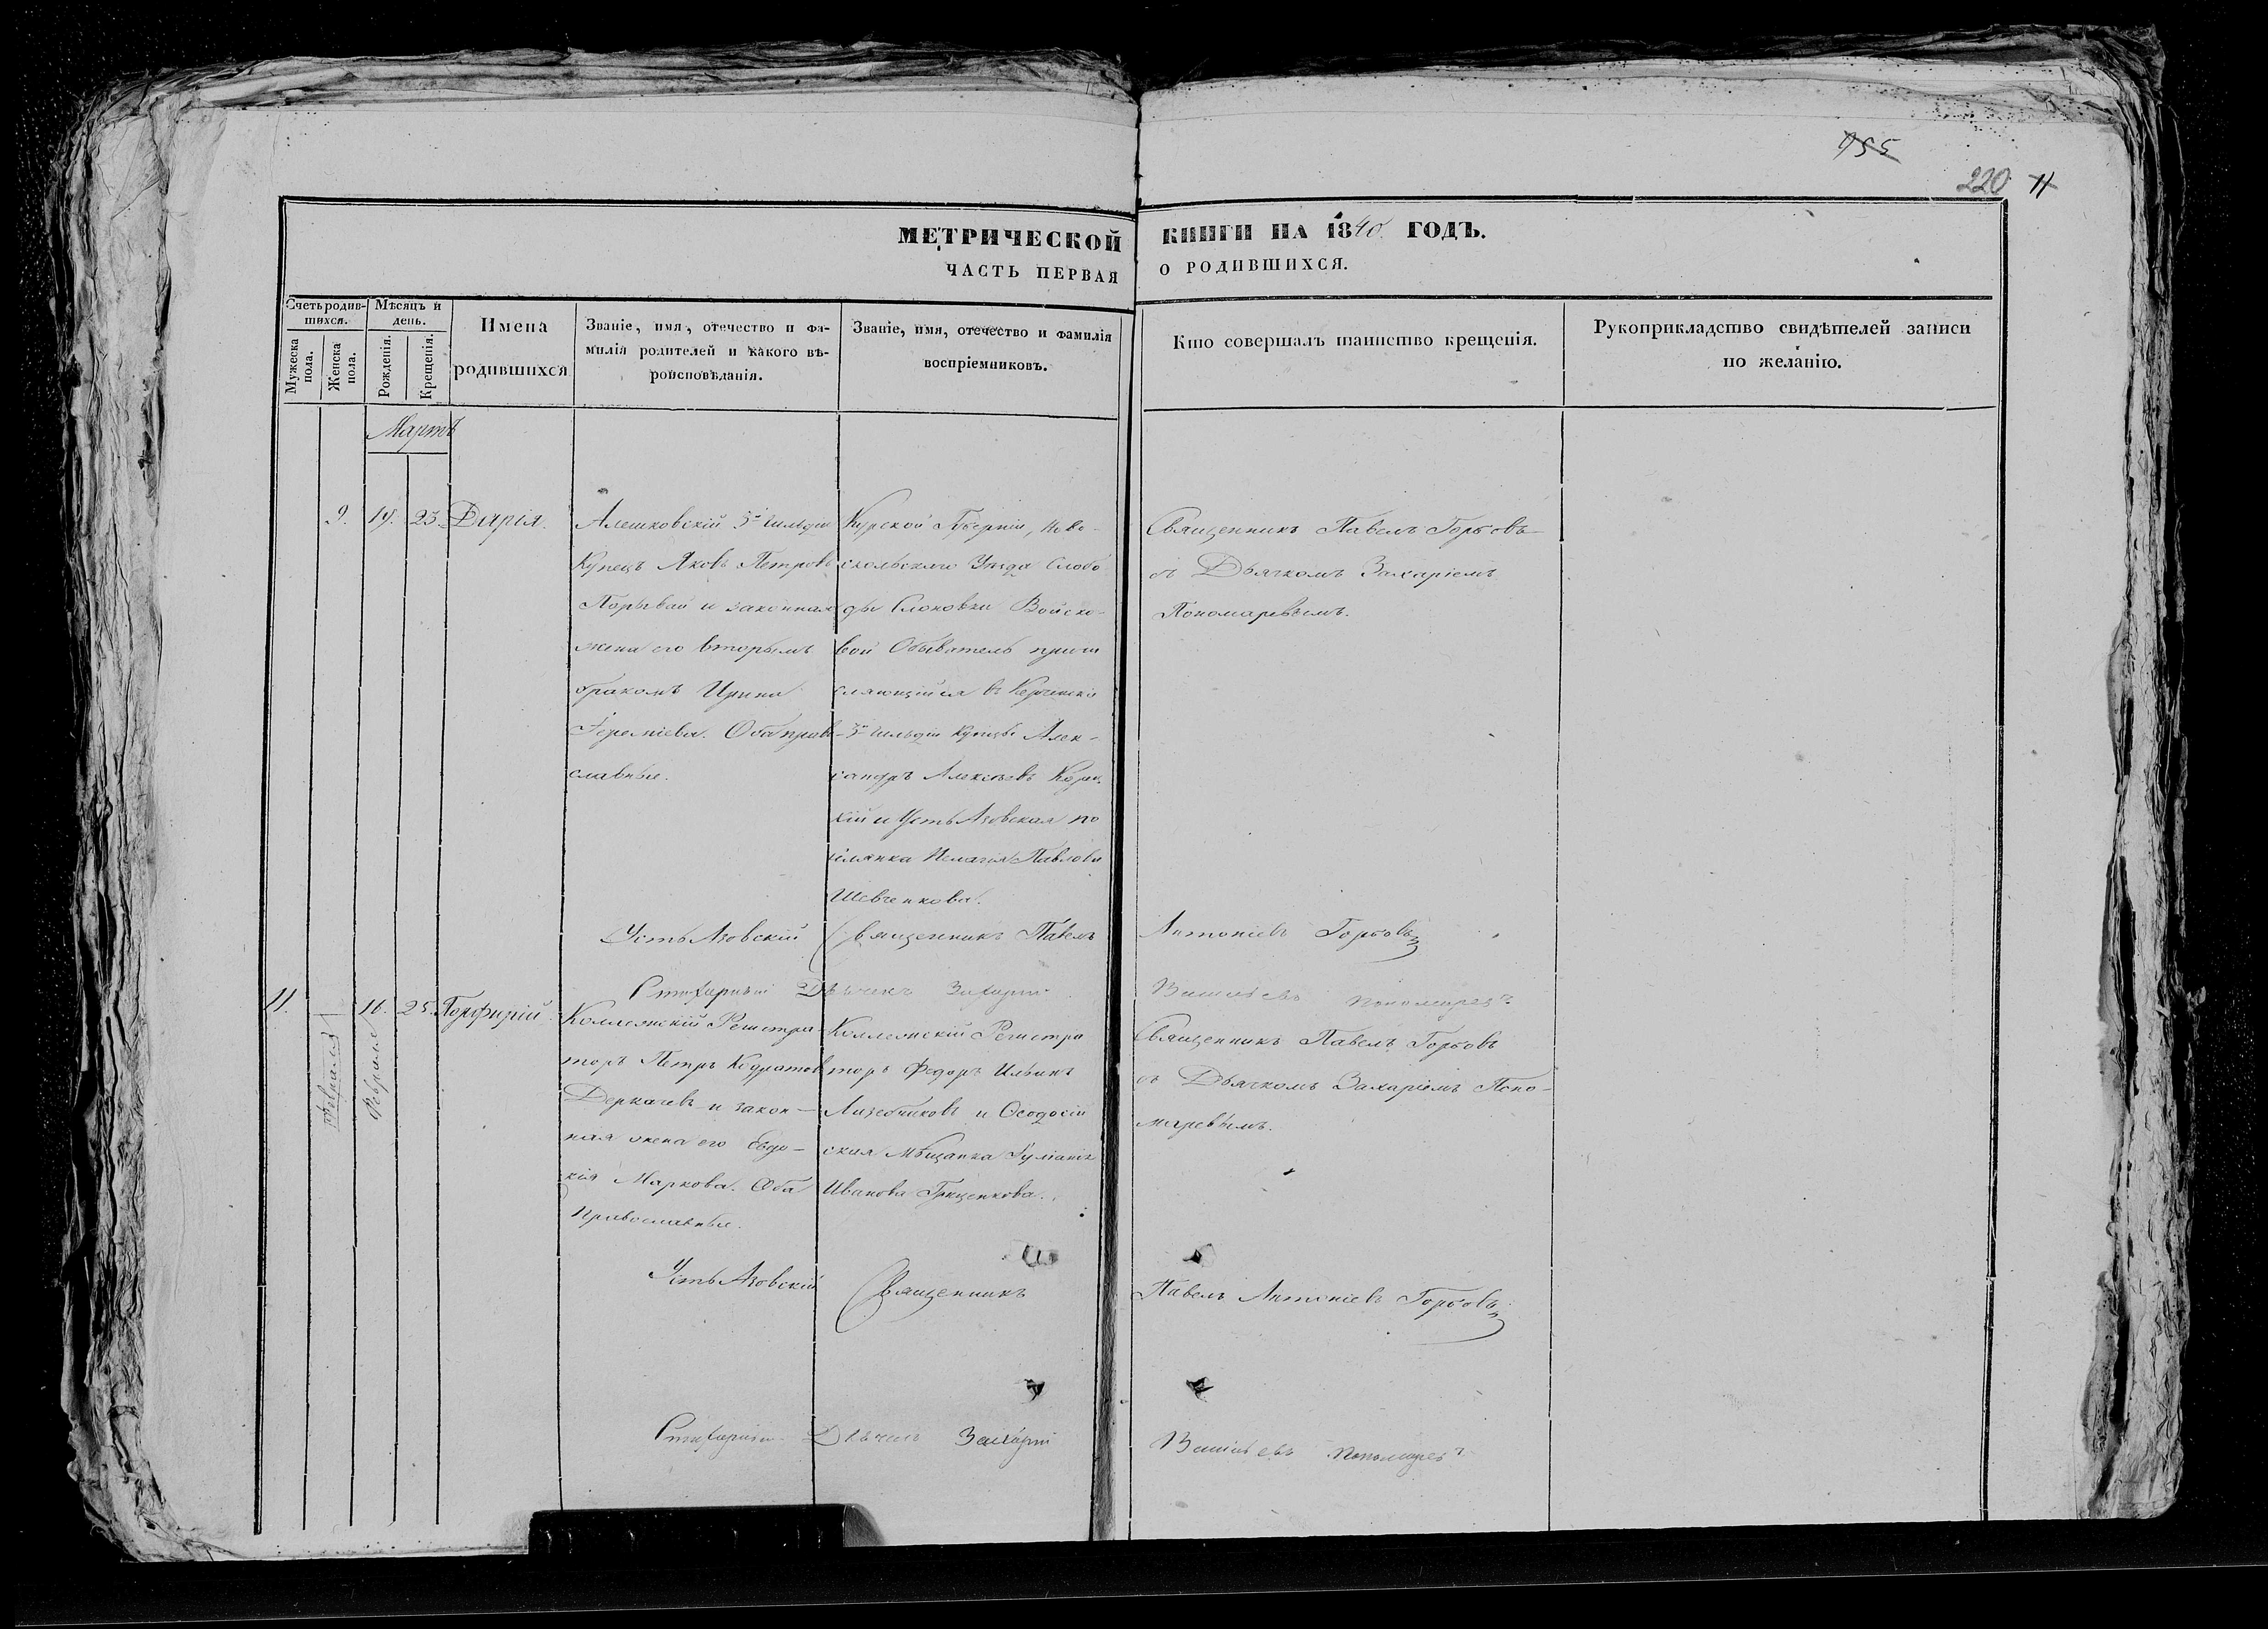 955
220 11
МЕТРИЧЕСКОЙ КНИГИ НА 1840 ГОДЪ.
ЧАСТЬ ПЕРВАЯ О РОДИВШИХСЯ.
Счетъ родив-
шихся.
Мужеска
пола.
Женска
пола.
Мѣсяцъ и
день.
Рожденія.
Крещенія.
Имена
родившихся
Званіе, имя, отечество и фа-
милія родителей и какого вѣ-
роисповѣданія.
Званіе, имя, отечество и фамилія
воспріемниковъ.
Кто совершалъ таинство крещенія.
Рукоприкладство свидѣтелей записи
по желанію.
Мартъ
9. 19. 23. Дарія.
Алешковскій 3й гильдіи
Купецъ Яковъ Петровъ
и законная
жена его вторымъ
бракомъ Ирина
Оба право
славные.
Курской Губерніи, Ново-
скольскаго Уѣзда Слобо
ды Слоновки Войско-
вой Обыватель
3й гильдіи Купцы Алек-
сандръ Алексѣевъ
и Усть Азовская по
селянка Пелагія Павлова
Шевченкова.
Священникъ Павелъ Горбовъ
съ Дьячкомъ Захаріемъ
Пономаревымъ.
Усть Азовскій Священникъ Павелъ Антоніевъ Горбовъ
Стихарный Дьячекъ Захарій Пономаревъ
11. 16. 25. Порфирій.
Февраля
Февраля
Коллежскій Регистра
торъ Петръ Кодратов
Деркачевъ и закон-
ная жена его Евдо-
кія Маркова. Оба
Православные.
Коллежскій Регистра
торъ Федоръ Ильинъ
и Ѳеодосій
ская Мѣщанка Гуліанія
Иванова Гриценкова.
Священникъ Павелъ Горбовъ
съ Дьячкомъ Захаріемъ Поно-
маревымъ.
Усть Азовскій Священникъ Павелъ Антоніевъ Горбовъ
Стихарный Дьячекъ Захарій Пономаревъ